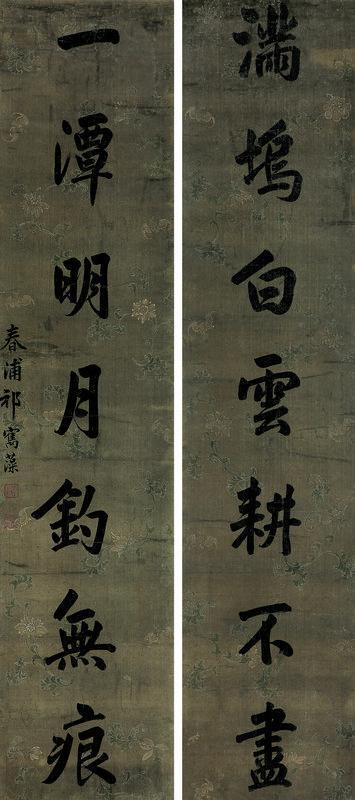 滿塢白雲耕不盡
一潭明月釣無痕
春浦祁寯藻